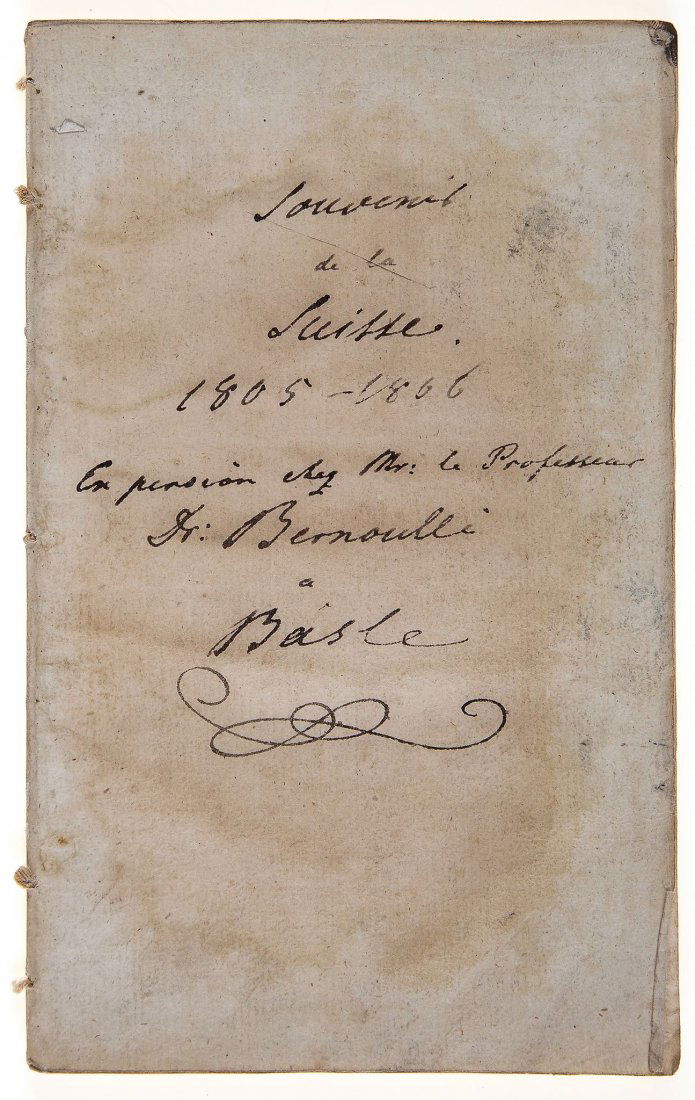 Souvenir
de la
Suisse.
1805-1806
En pension chez Mr: le Professeur
Dr: Bernoulli
a
Basle